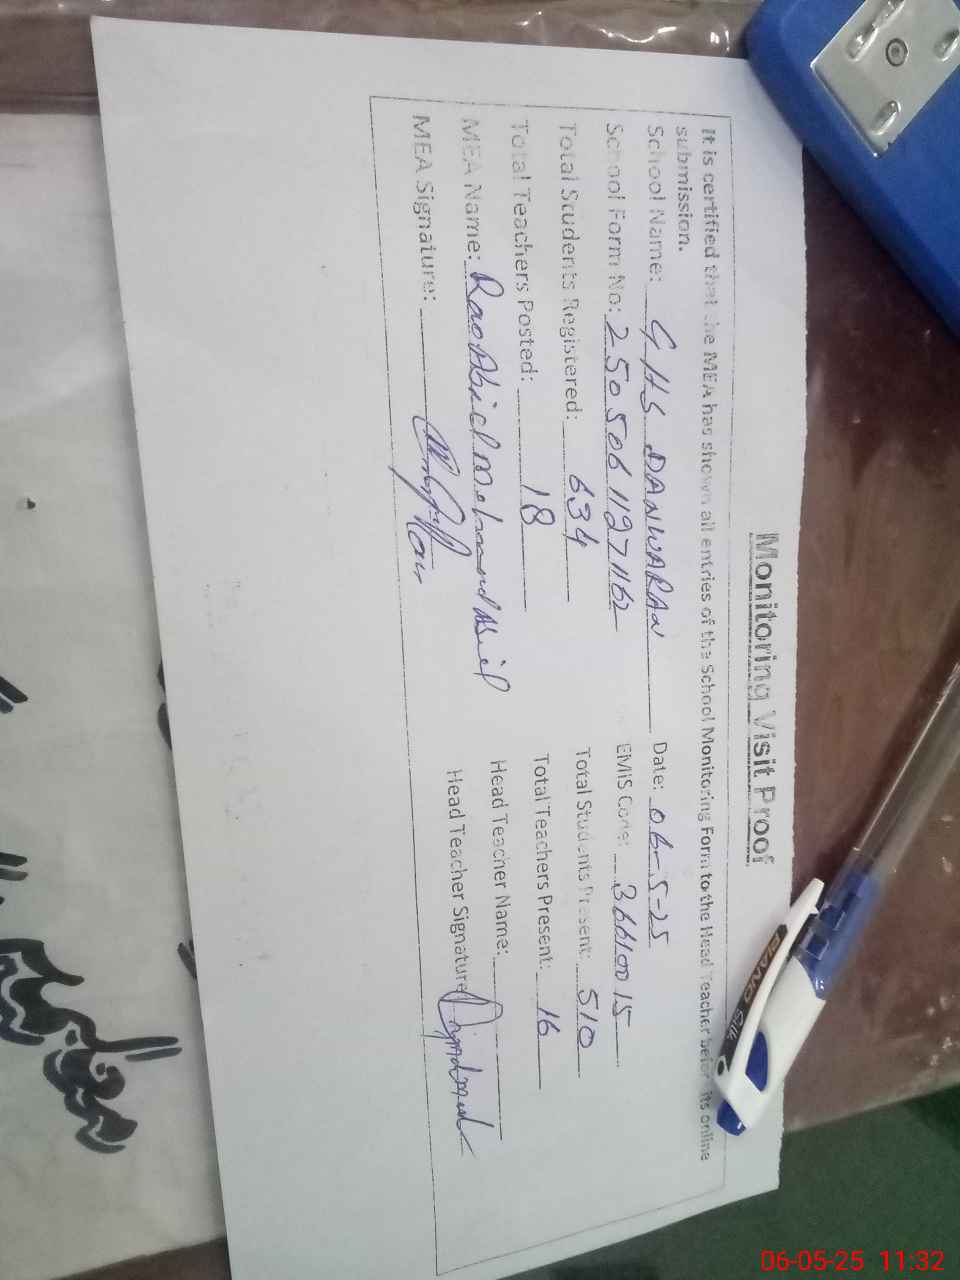 Monitoring Visit Proof
It is certified that the MEA has shown all entries of the School Monitoring Form to the Head Teacher before its online
submission.
School Name: GHS DANWARAN Date: 06-5-25
School Form No: 25050611271162 EMIS Code: 36610015
Total Students Registered: 634 Total Students Present: 510
Total Teachers Posted: 18 Total Teachers Present: 16
MEA Name: Rao Abid Head Teacher Name:
MEA Signature: Head Teacher Signature
PIANO
06-05-25 11:32